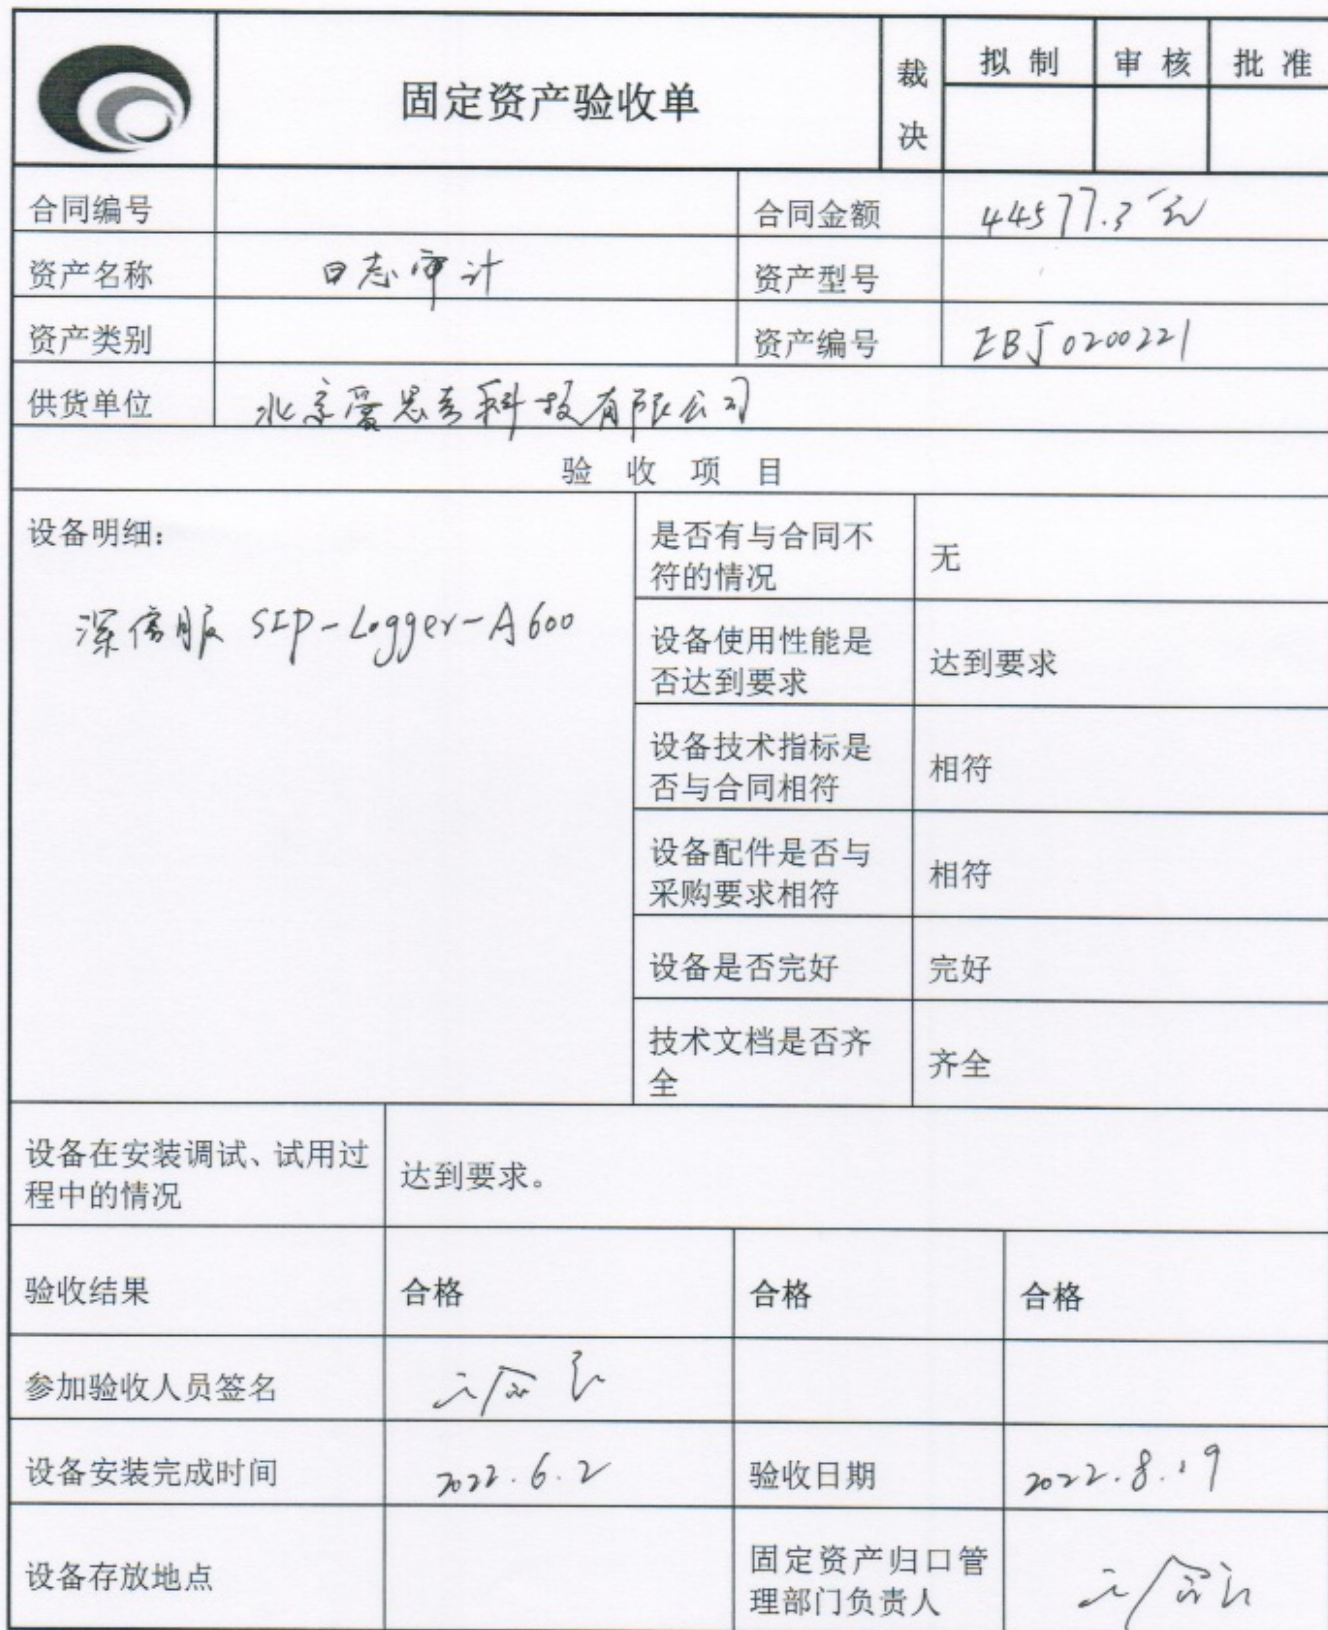 固定资产验收单
裁决
拟制
审核
批准
合同编号
合同金额 44577.3元
资产名称 日志审计
资产型号
资产类别
资产编号 ZBJ0200221
供货单位 北京爱思考科技有限公司
验收项目
设备明细:
深信服 SIP-Logger-A600
是否有与合同不
符的情况
无
设备使用性能是
否达到要求
达到要求
设备技术指标是
否与合同相符
相符
设备配件是否与
采购要求相符
相符
设备是否完好
完好
技术文档是否齐
全
齐全
设备在安装调试、试用过
程中的情况
达到要求。
验收结果 合格 合格 合格
参加验收人员签名
设备安装完成时间 2022.6.2 验收日期 2022.8.19
设备存放地点
固定资产归口管
理部门负责人